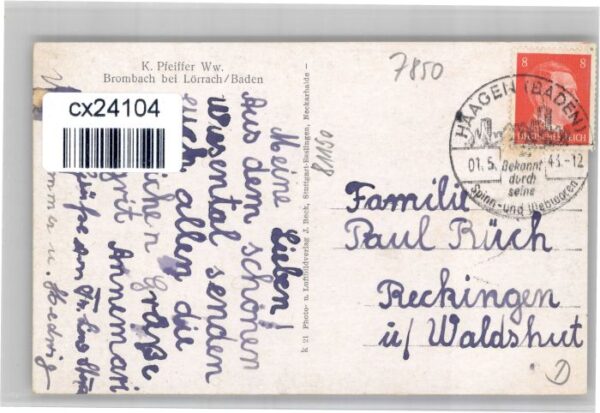 K. Pfeiffer Ww.
Brombach bei Lörrach/Baden
cx24104
Meine Lieben!
Aus dem schönen
Wiesental senden
euch allen die
Grüße
Annemari
u. Hedwig
k 21 Photo- u. Luftbildverlag J. Beck, Stuttgart-Esslingen, Neckarhalde
81150
7850
8 8
DEUTSCHES REICH
HAAGEN (BADEN)
01.5. 43.-12
Bekannt
durch
seine
Spinn- und Webwaren
Familie
Paul Rüch
Reckingen
ü/ Waldshut
D